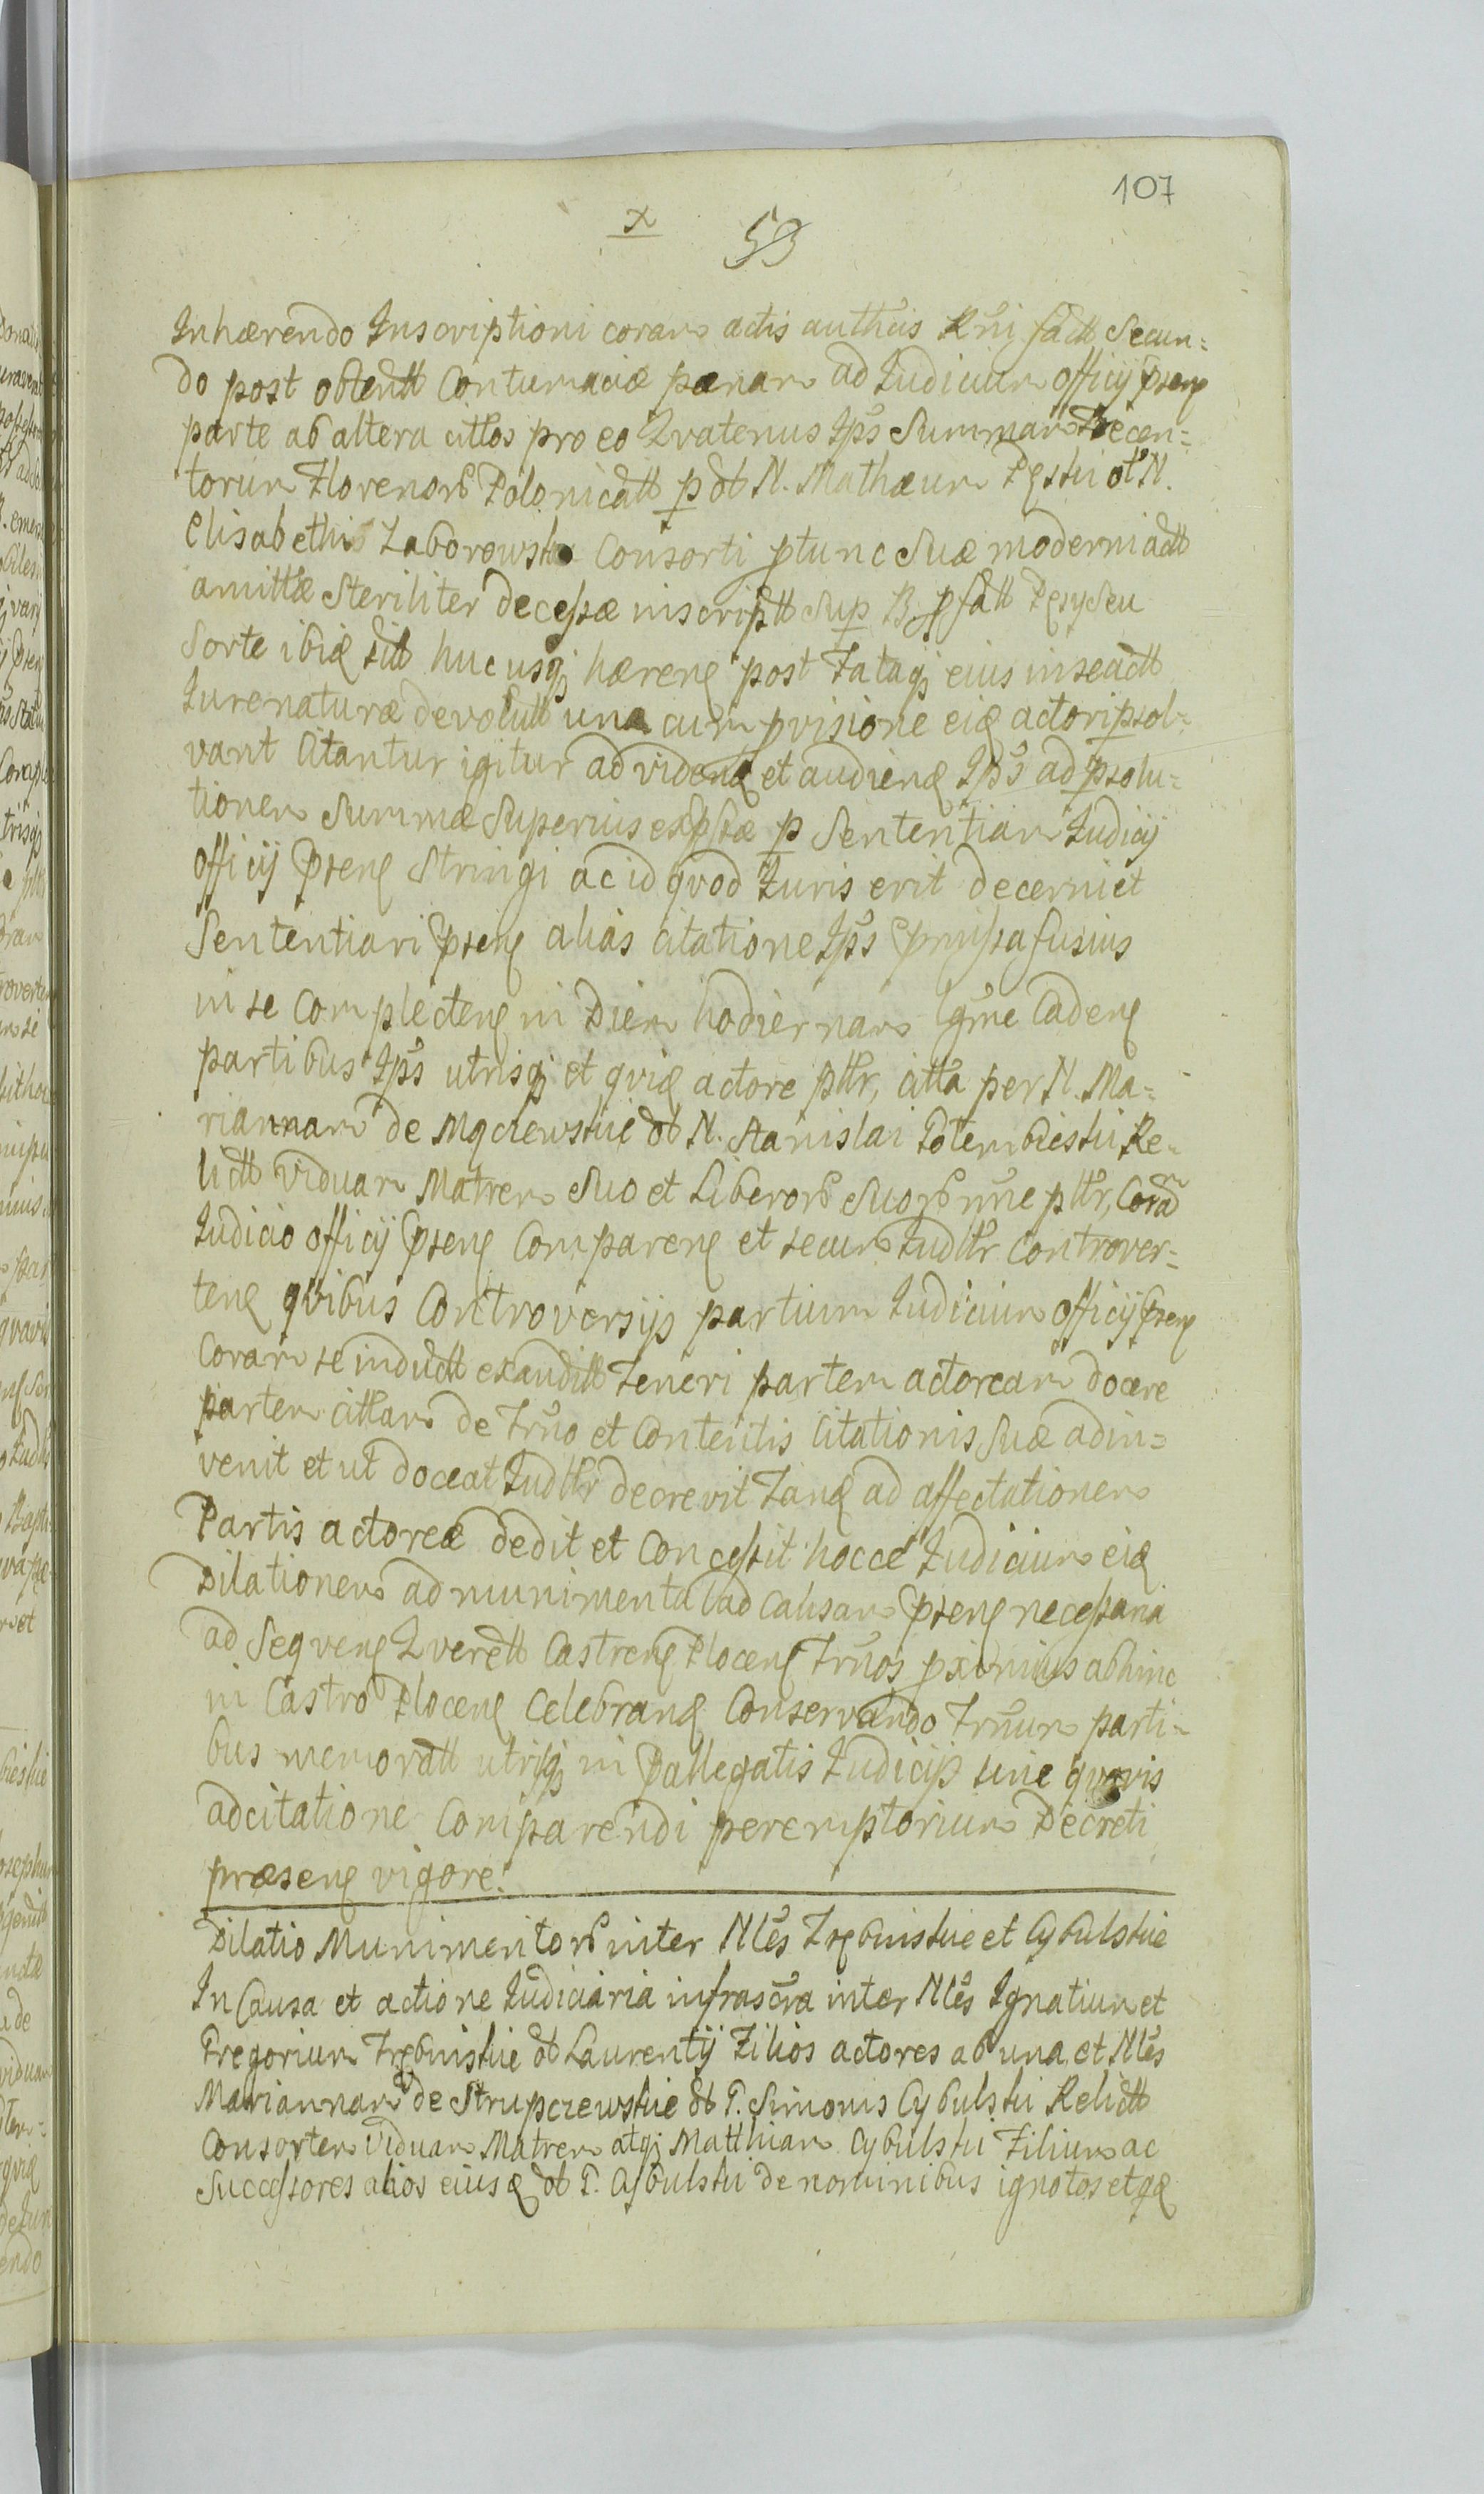 107
x 59
Inhærendo Inscriptioni coram actis authcis Rni factt Secun=
do post obtentt Contumaciæ pænam ad Iudicium officij pseng
parte ab altera cittos pro eo Qvatenus Ips Summam Trecen=
torum Florenorb Polonicatt p ob N. Mathæum et N.
Elisabethis Zaborowska Consorti ptunc Suæ moderni actt
amittæ Steriliter decessæ inscriptt Sup B. pfatt seu
Sorte ibiq sitt hucusqj hæreng post Fataqj eius in se actt
Iure naturæ devolutt una cum pvisione eiq actori psol=
vant Citantur igitur ad videnq et audienq Ips ad psolu=
tionem Summæ Superius expssæ p Sententiam Iudicij
officij pseng Stringi ac id qvod Iuris erit decerni et
Sententiari pseng alias Citatione Ips pmissa fusius
in se Complecteng in Diem hodiernam lgme Cadeng
partibus Ips utrisqj et qviq actore pttr, citta per N. Ma=
riannam de Mqczewskie ob N. Stanislai Potembieski Re=
lictt Viduam Matrem Suo et Liberorb Suorb nne pttr, Coram
Iudicio officij pseng Compareng et secum Iudttr Controver=
teng qvibus Controversijs partium Iudicium officij pseng
Coram se inductt exauditt Teneri partem actoream docere
partem cittam de Trno et Contentis Citationis Suæ adin=
venit et ut doceat Iudttr decrevit Tanq ad affectationem
Partis actoreæ dedit et Concessit hocce Iudicium eiq
Dilationem ad munimenta ad Causam pseng necessaria
ad Seqveng Qverett Castreng Ploceng Trnos pximius abhinc
in Castro Ploceng Celebranq Conservando Trnum parti=
bus memoratt utrisqj in pallegatis Iudicijs sine qvavis
adcitatione Comparendi peremptorium Decreti
præseng vigore.
Dilatio Munimentorb inter Nles Trębinskie et Cybulskie
In Causa et actione Iudiciaria infrascra inter Nles Ignatium et
Gregorium Trębinskie ob Laurentij Filios actores ab una et Nles
Mariannam de Strupczewskie ob G. Simonis Cybulski Relictt
Consortem Viduam Matrem atqj Matthiam Cybulski Filium ac
Successores alios eiusq ob G. Cybulski de nominibus ignotos etqq